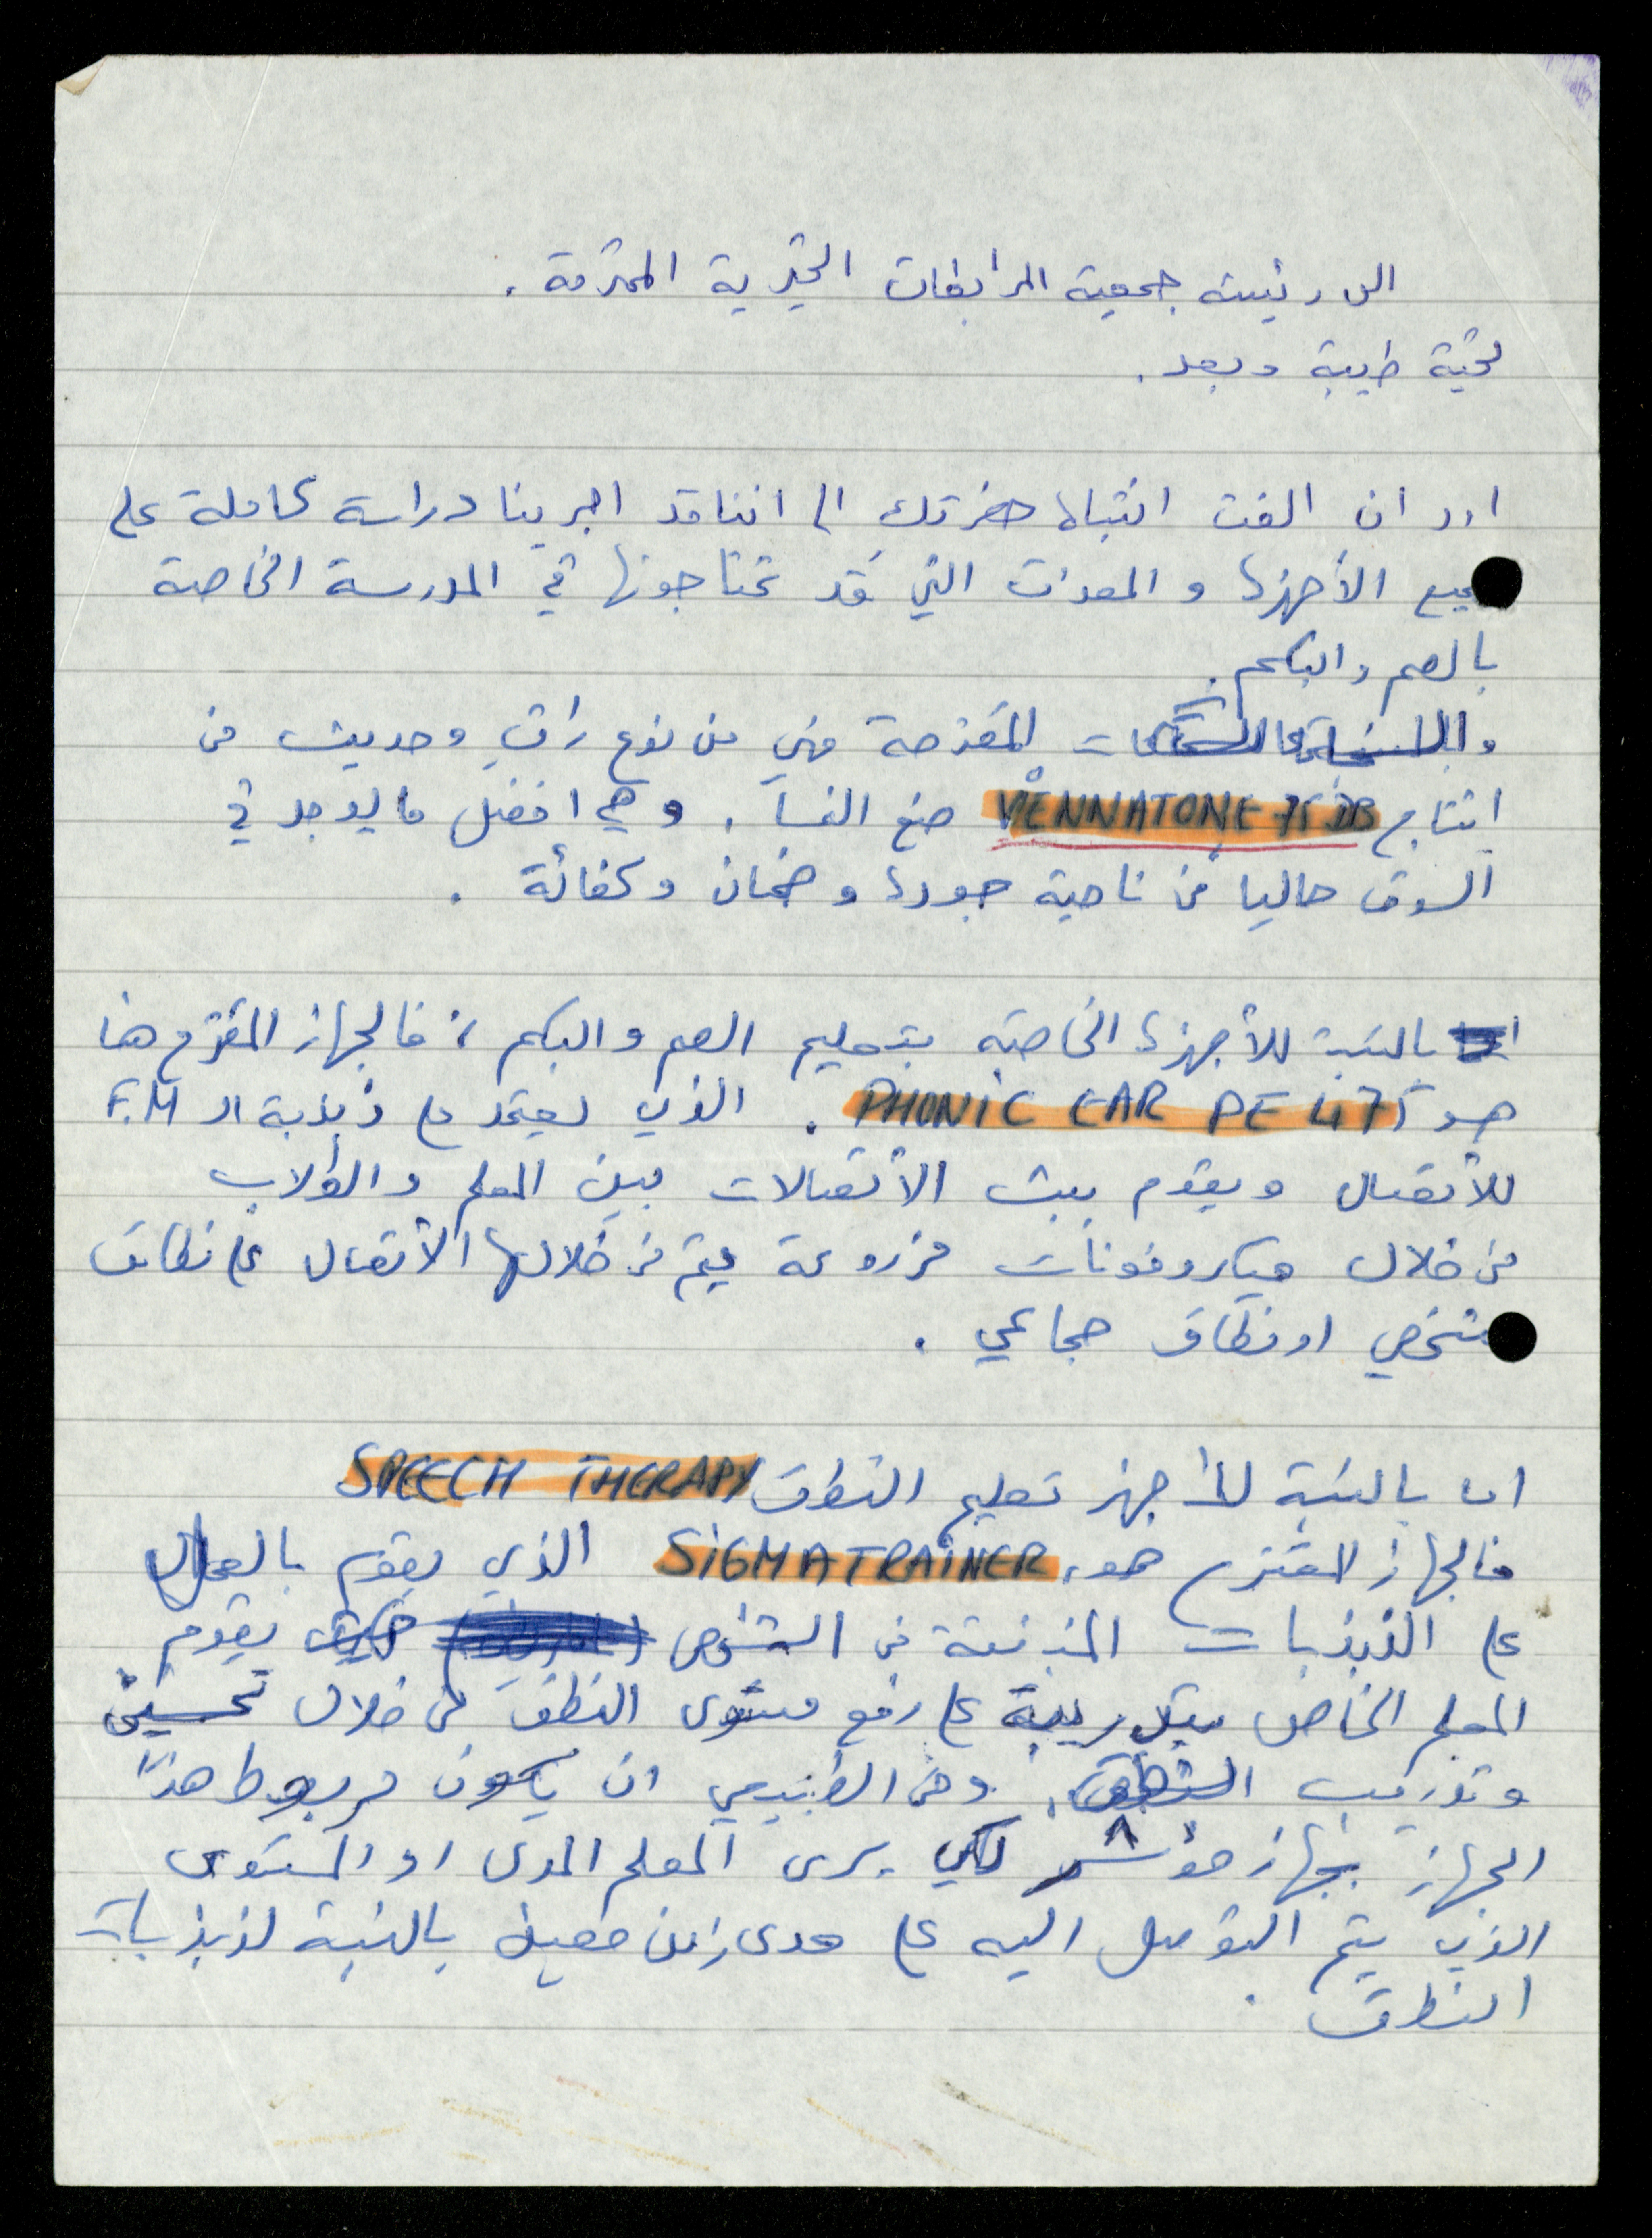 الى رئيسة جمعية المرابطات الخيرية المحترمة .
تحية طيبة وبعد .
اود ان الفت انتباه حضرتك الى اننا قد اجرينا دراسة كاملة على
جميع الأجهزة و المعدات التي قد تحتاجونها في المدرسة الخاصة
بالصم والبكم .
المقترحة فهي من نوع راقٍ وحديث من
انتاج VENNATONE 75 DB صنع النمسا . وهي افضل ما يوجد في
السوق حاليا من ناحية جودة و ضمان وكفائة .
بالنسبة للأجهزة الخاصة بتعليم الصم والبكم ، فالجهاز المقترح هنا
هو PHONIC EAR PE 475 . الذي يعتمد على ذبذبة الـ F.M
للأتصال ويقوم ببث الأتصالات بين المعلم والطلاب
من خلال ميكروفونات مزروعة يتم من خلالها الأتصال على نطاق
شخصي او نطاق جماعي .
اما بالنسبة للأجهز تعليم النطق SPEECH THERAPY
فالجهاز المقترح هو ، SIGMATRAINER الذي يقوم بالعمل
على الذبذبات المندفعة من الشخص يقوم
المعلم الخاص بتدريبه على رفع مستوى النطق من خلال تحسين
وتدريب النطق . ومن الطبيعي ان يكون مربوط هذا
الجهاز بجهاز مؤشر لكي يرى المعلم المدى او المستوى
الذي يتم التوصل اليه على مدى زمن معين بالنسبة لذبذبات
النطق .